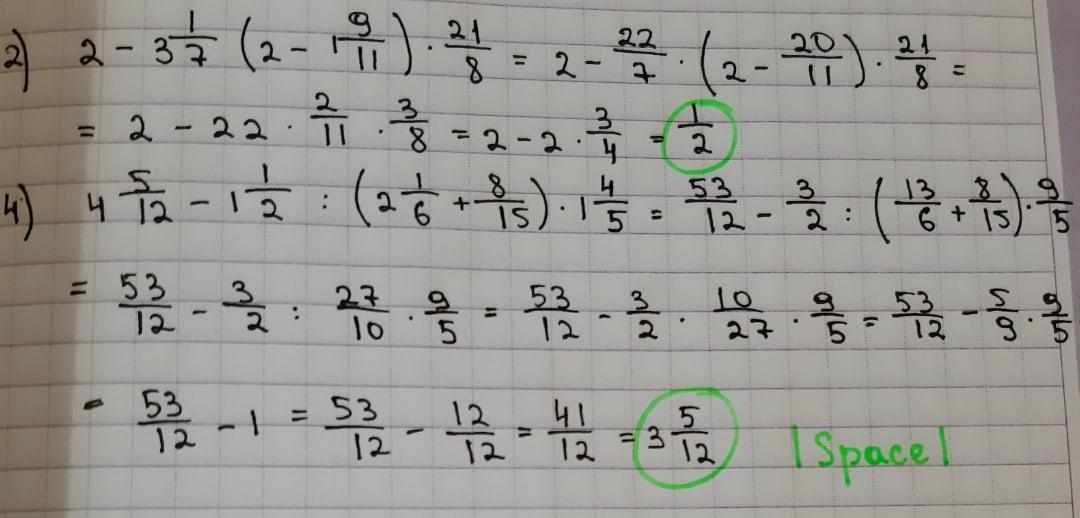 2) 2 - 3 1/7 (2 - 1 9/11) · 21/8 = 2 - 22/7 · (2 - 20/11) · 21/8 =
= 2 - 22 · 2/11 · 3/8 = 2 - 2 · 3/4 = 1/2
4) 4 5/12 - 1 1/2 : (2 1/6 + 8/15) · 1 4/5 = 53/12 - 3/2 : (13/6 + 8/15) · 9/5
= 53/12 - 3/2 : 27/10 · 9/5 = 53/12 - 3/2 · 10/27 · 9/5 = 53/12 - 5/9 · 9/5
- 53/12 - 1 = 53/12 - 12/12 = 41/12 = 3 5/12
|Space|